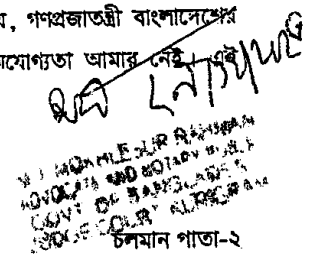 , গণপ্রজাতন্ত্রী বাংলাদেশের
যোগ্যতা আমার নেই। এই
MOKHLESUR RAHMAN
ADVOCATE AND NOTARY PUBLIC
GOVT OF BANGLADESH
JUDGE COURT KURIGRAM
চলমান পাতা-২